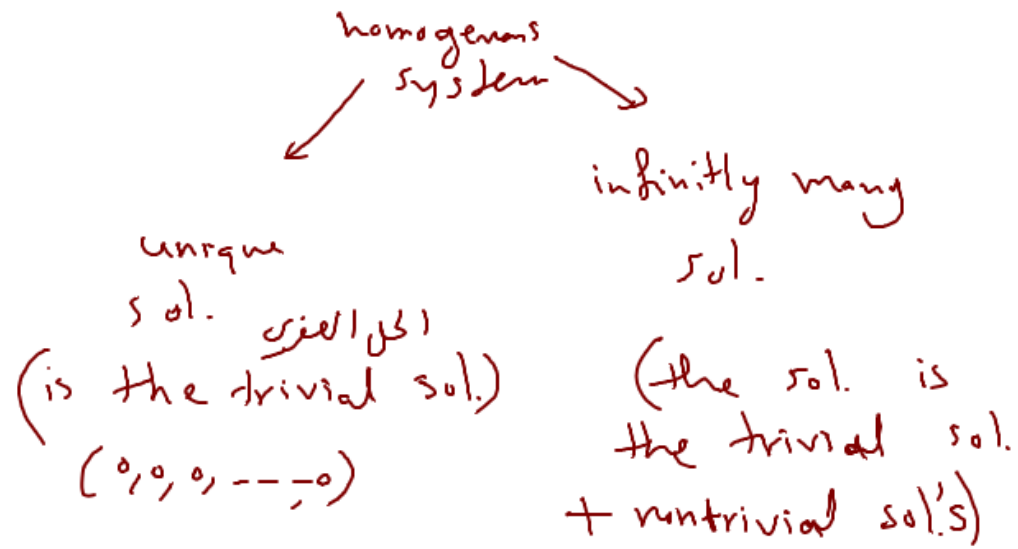 homogenous
system
unique
sol.
الحل الصفري
(is the trivial sol.)
(0,0,0, ---,0)
infinitly many
sol.
(the sol. is
the trivial sol.
+ nontrivial sol.'s)